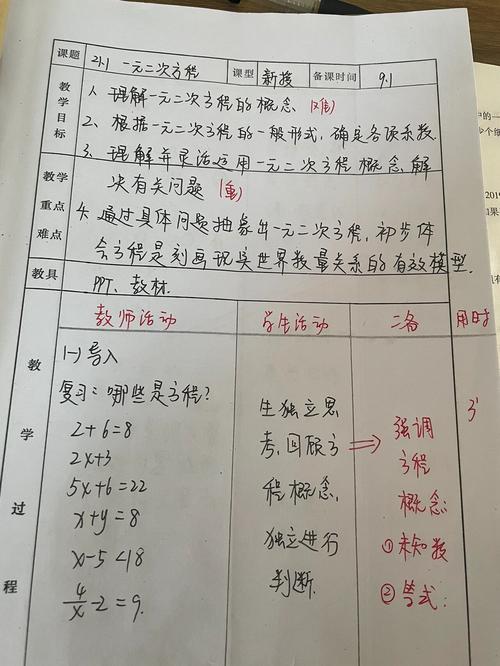 课题 21.1 一元二次方程 课型 新授 备课时间 9.1
教学目标
1、理解一元二次方程的概念 (难)
2、根据一元二次方程的一般形式,确定各项系数.
3、理解并灵活运用一元二次方程概念解
决有关问题 (重)
教学重点难点
4、通过具体问题抽象出一元二次方程,初步体
会方程是刻画现实世界数量关系的有效模型.
教具 PPT、教材.
教学过程
教师活动 学生活动 二备 用时
(一) 导入
复习:哪些是方程?
2+6=8
2x+3
5x+6=22
x+y=8
x-5<18
4/x-2=9.
生独立思
考,回顾方
程概念,
独立进行
判断.
⇒ 强调
方程
概念:
①未知数
②等式:
3'
2019